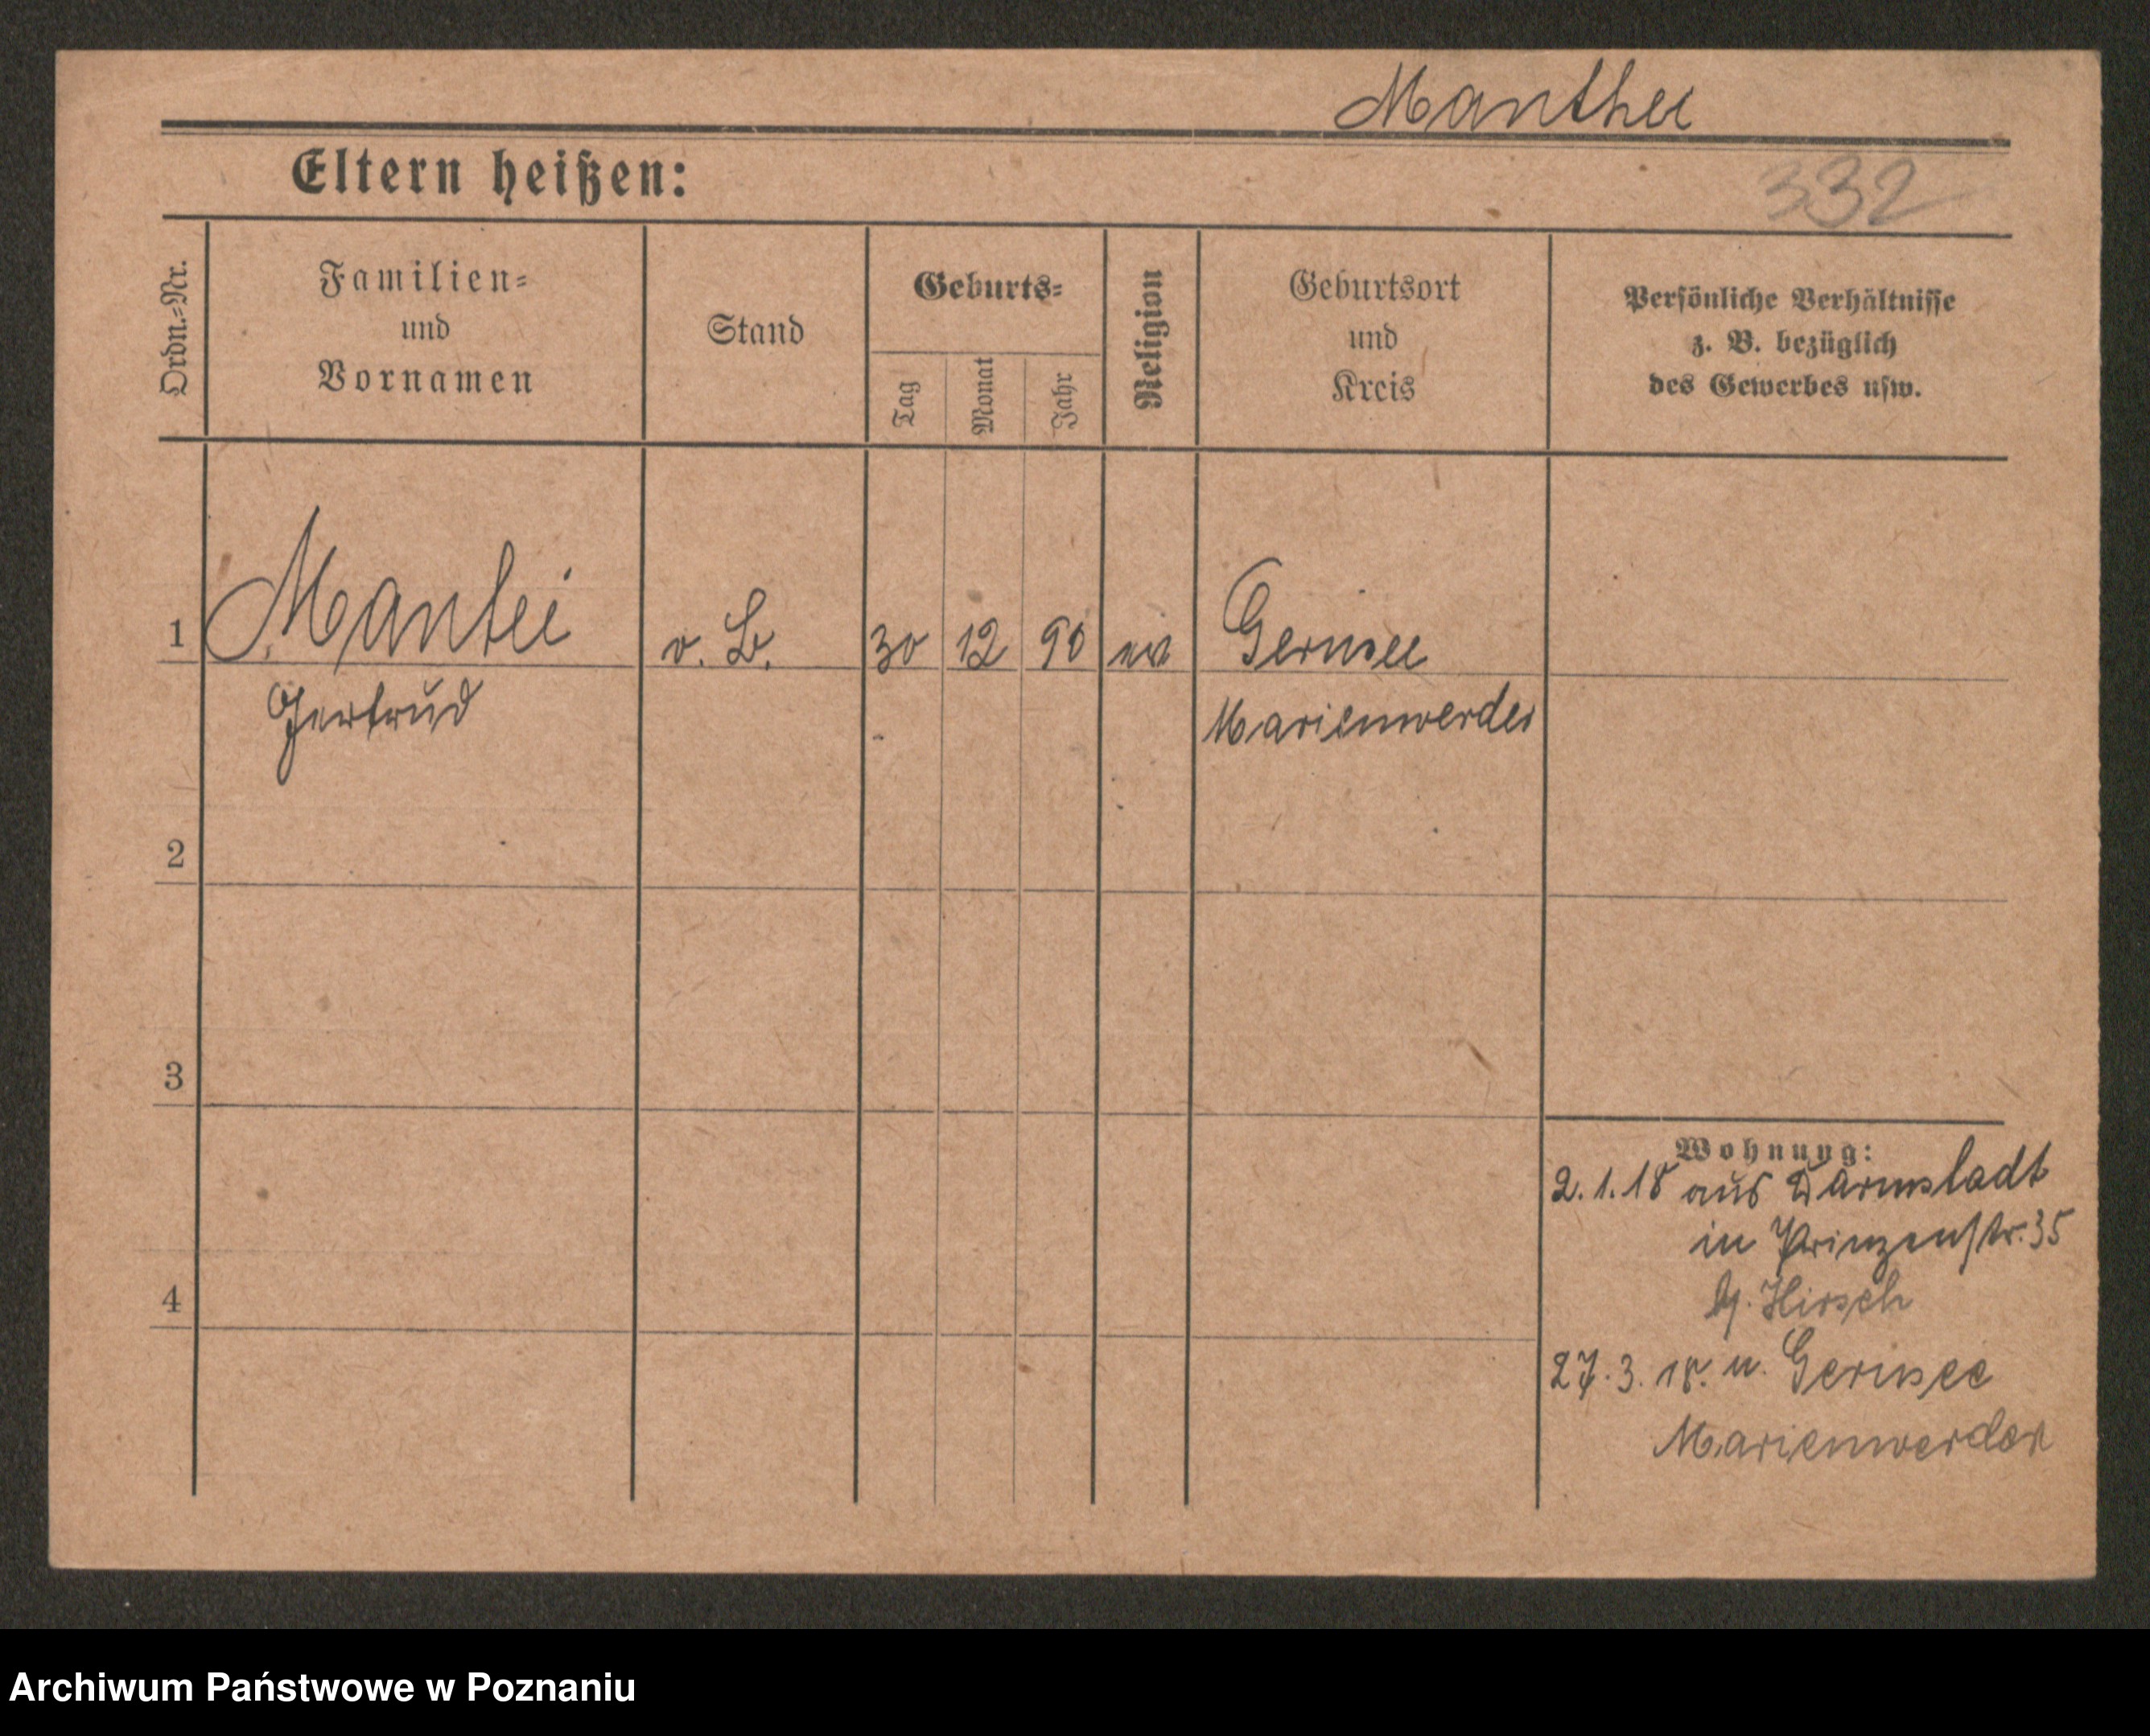 Manthei
Eltern heißen:
332
Ordn.-Nr.
Familien-
und
Vornamen
Stand
Geburts-
Tag
Monat
Jahr
Religion
Geburtsort
und
Kreis
Persönliche Verhältnisse
z. B. bezüglich
des Gewerbes usw.
1
Mantei
o. B.
30
12
90
ev
Gernsee
Gertrud
Marienwerder
2
3
Wohnung:
2.1.18 aus Darmstadt
in Prinzenstr. 35
b/. Hirsch
4
27.3.18. n. Gernsee
Marienwerder
Archiwum Państwowe w Poznaniu